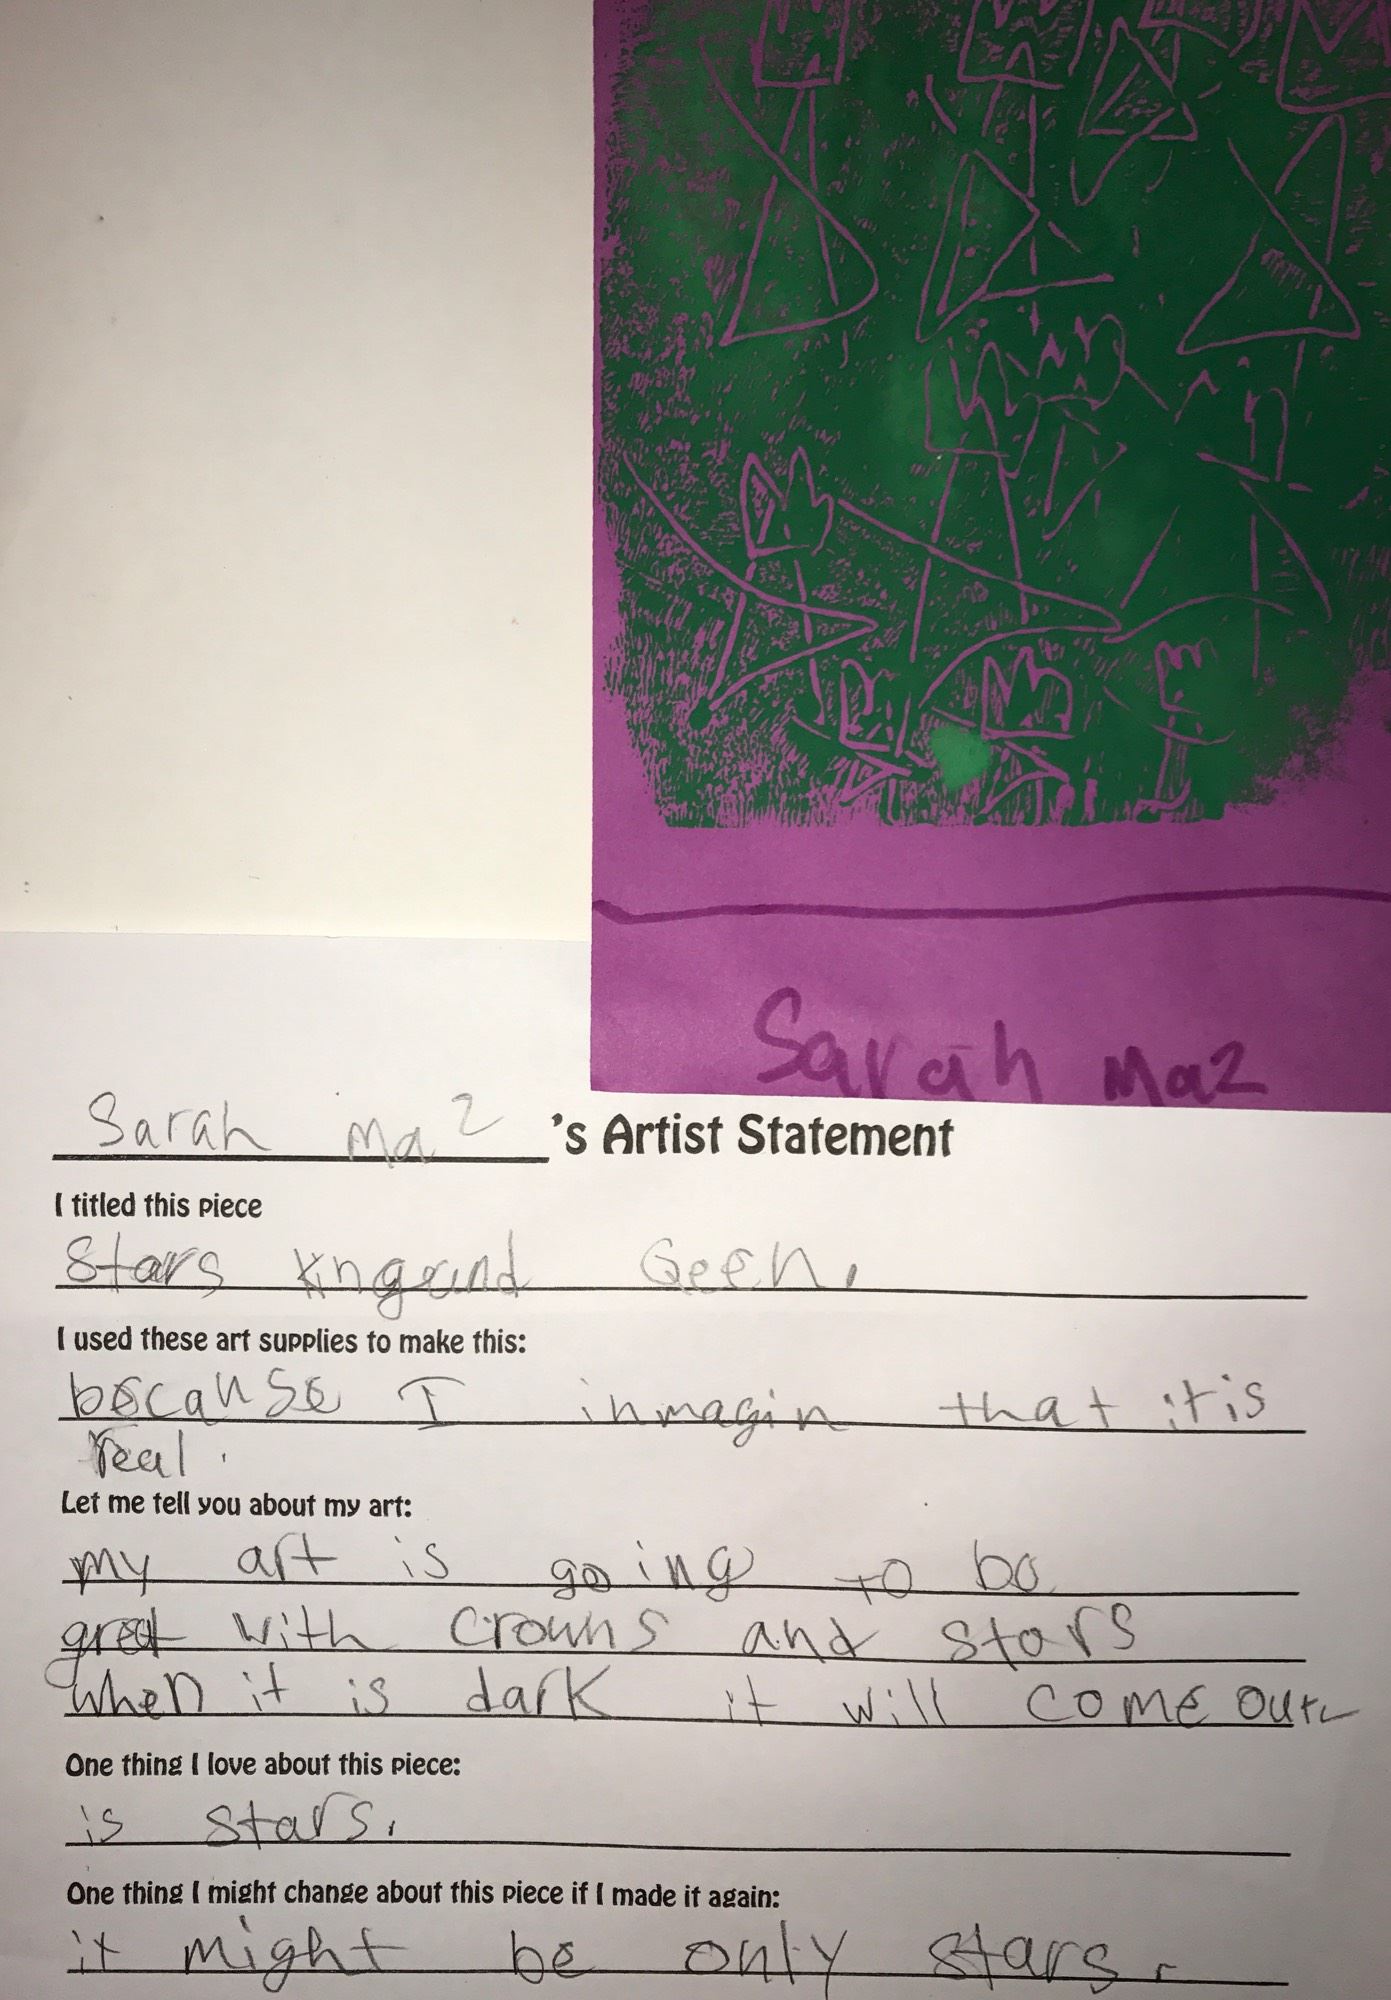 Sarah Ma2
Sarah Ma2 's Artist Statement
I titled this piece
Stars Geen.
I used these art supplies to make this:
because I inmagin that it is
real.
Let me tell you about my art:
my art is going to be
great with crowns and stars
when it is dark it will come out.
One thing I love about this piece:
is stars.
One thing I might change about this piece if I made it again:
it might be only stars.